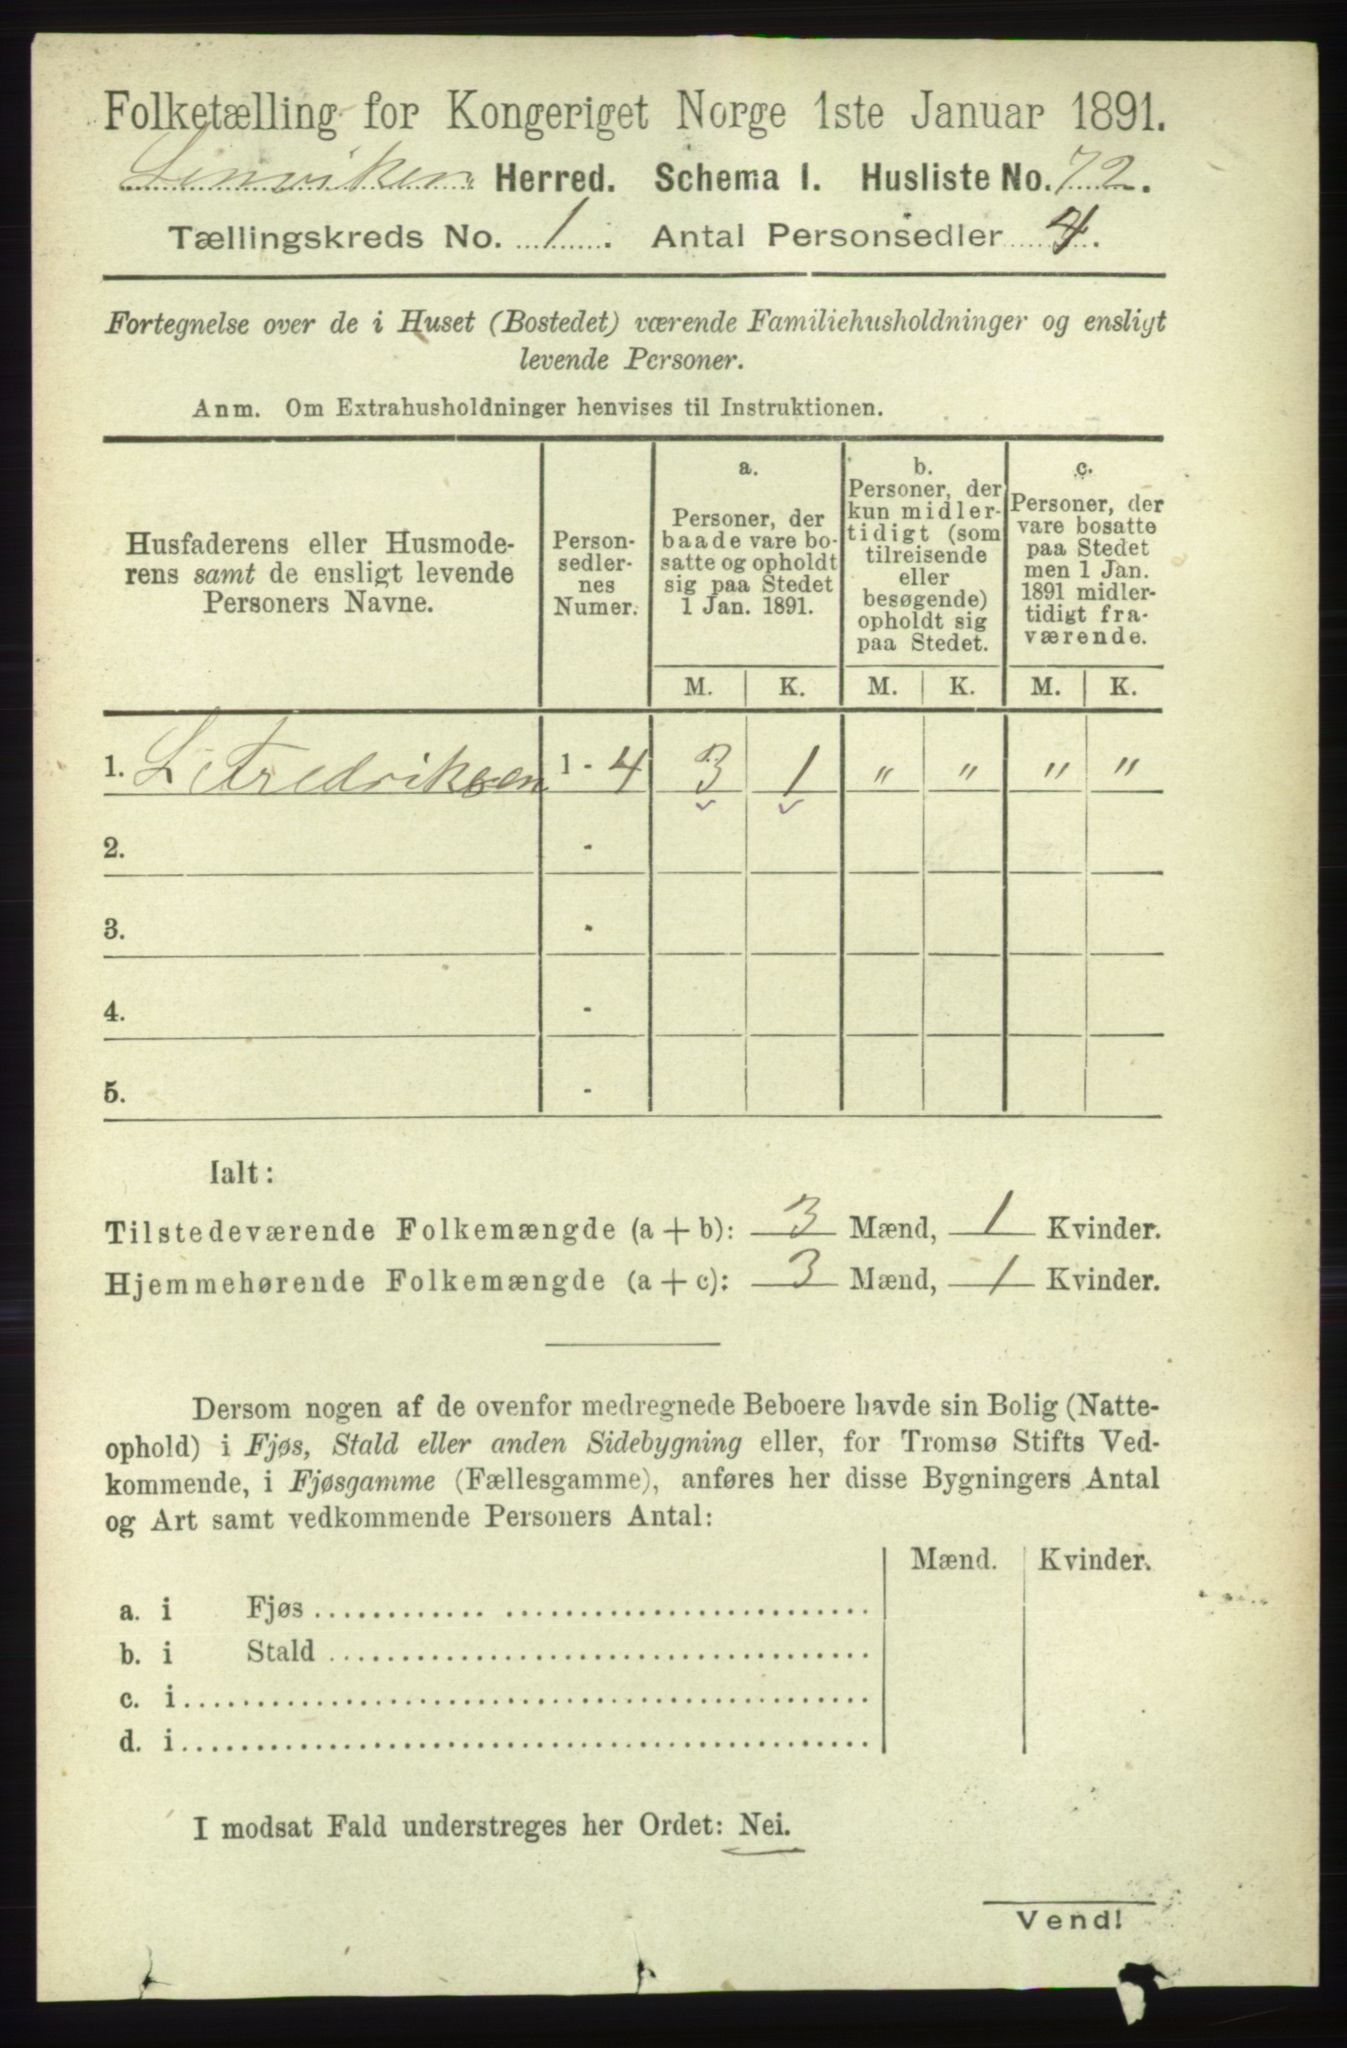 Folketælling for Kongeriget Norge 1ste Januar 1891.
Lenviken Herred. Schema I. Husliste No. 72.
Tællingskreds No. 1. Antal Personsedler 4.
Fortegnelse over de i Huset (Bostedet) værende Familiehusholdninger og ensligt
levende Personer.
Anm. Om Extrahusholdninger henvises til Instruktionen.
Husfaderens eller Husmode-
rens samt de ensligt levende
Personers Navne.
Person-
sedler-
nes
Numer.
a.
Personer, der
baade vare bo-
satte og opholdt
sig paa Stedet
1 Jan. 1891.
b.
Personer, der
kun midler-
tidigt (som
tilreisende
eller
besøgende)
opholdt sig
paa Stedet.
c.
Personer, der
vare bosatte
paa Stedet
men 1 Jan.
1891 midler-
tidigt fra-
værende.
M. K. M. K. M. K.
1. L. Fredriksen 1 - 4 3 1 " " " "
2. -
3. -
4. -
5. -
Ialt:
Tilstedeværende Folkemængde (a + b): 3 Mænd, 1 Kvinder.
Hjemmehørende Folkemængde (a + c): 3 Mænd, 1 Kvinder.
Dersom nogen af de ovenfor medregnede Beboere havde sin Bolig (Natte-
ophold) i Fjøs, Stald eller anden Sidebygning eller, for Tromsø Stifts Ved-
kommende, i Fjøsgamme (Fællesgamme), anføres her disse Bygningers Antal
og Art samt vedkommende Personers Antal:
Mænd. Kvinder.
a. i Fjøs
b. i Stald
c. i
d. i
I modsat Fald understreges her Ordet: Nei.
Vend!